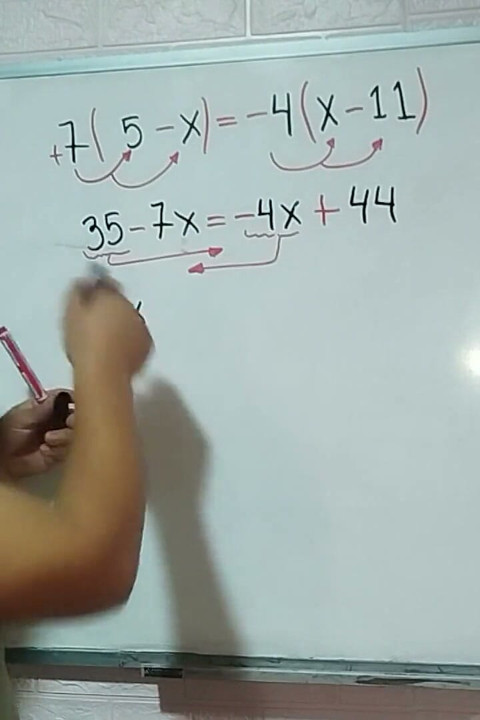 +7(5-x)=-4(x-11)
35-7x=-4x+44